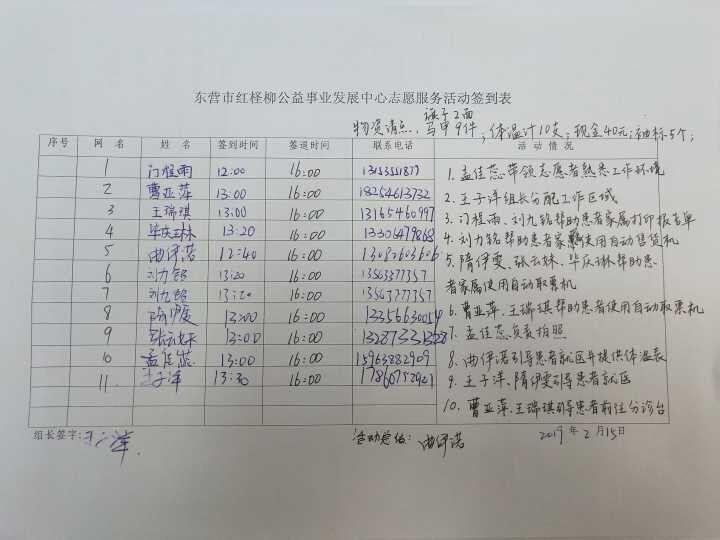 东营市红柽柳公益事业发展中心志愿服务活动签到表
旗子2面
物资清点:马甲9件;体温计10支;现金40元;袖标5个;
序号 网 名 姓 名 签到时间 签退时间 联系电话 活 动 情 况
1 门程雨 12:00 16:00
2 曹亚萍 13:00 16:00 18254613732
3 王瑞琪 13:00 16:00 13165460997
4 毕庆琳 13:20 16:00 13306479868
5 曲伊诺 12:40 16:00 13082603606
6 刘力铭 13:20 16:00 13563377357
7 刘九铭 13:20 16:00 13563777357
8 13:00 16:00
9 张云妹 13:00 16:00
10 孟佳蕊 13:00 16:00 13963882909
11. 王子洋 13:30 16:00
1. 孟佳蕊带领志愿者熟悉工作环境
2. 王子洋组长分配工作区域
3. 门程雨、刘九铭帮助患者家属打印报告单
4. 刘力铭帮助患者家属使用自动售货机
5. 隋伊雯、张云妹、毕庆琳帮助患
者家属使用自动取票机
6. 曹亚萍、王瑞琪帮助患者使用自动取票机
7. 孟佳蕊负责拍照
8. 曲伊诺引导患者就医并提供体温表
9. 王子洋、隋伊雯引导患者就医
10. 曹亚萍、王瑞琪引导患者前往分诊台
组长签字:王子洋 活动总结:曲伊诺 2019年2月15日